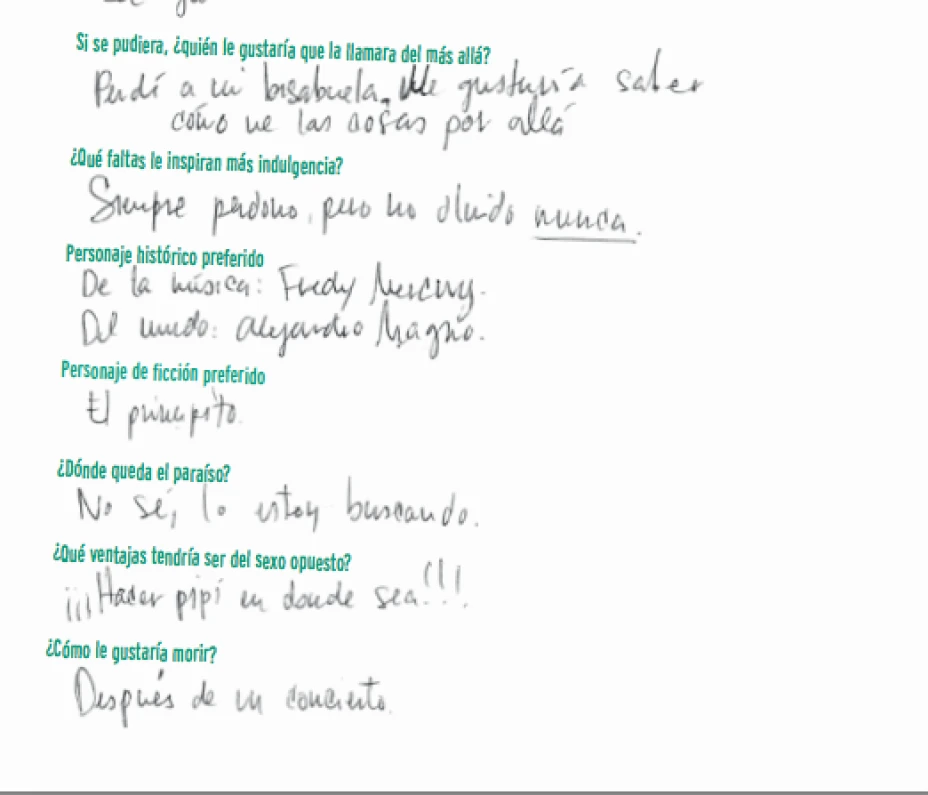 Si se pudiera, ¿quién le gustaría que la llamara del más allá?
Perdí a mi bisabuela. Me gustaría saber
cómo ve las cosas por allá
¿Qué faltas le inspiran más indulgencia?
Siempre perdono, pero no olvido nunca.
Personaje histórico preferido
De la música: Fredy Mercury.
Del mundo: Alejandro Magno.
Personaje de ficción preferido
El principito.
¿Dónde queda el paraíso?
No sé, lo estoy buscando.
¿Qué ventajas tendría ser del sexo opuesto?
¡¡¡Hacer pipí en donde sea!!!.
¿Cómo le gustaría morir?
Después de un concierto.